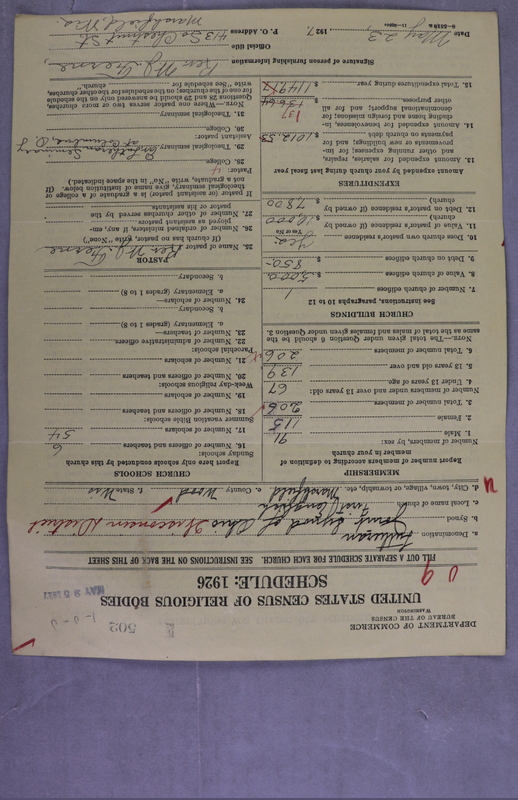 DEPARTMENT OF COMMERCE
BUREAU OF THE CENSUS
WASHINGTON
502
1-0-0
MAY 25 1927
UNITED STATES CENSUS OF RELIGIOUS BODIES
SCHEDULE: 1926
FILL OUT A SEPARATE SCHEDULE FOR EACH CHURCH. SEE INSTRUCTIONS ON THE BACK OF THIS SHEET
a. Denomination Lutheran
b. Synod Joint Synod of Ohio Wisconsin District
c. Local name of church First English
d. City, town, village, or township, etc. Marshfield e. County Wood f. State Wis
MEMBERSHIP
Report number of members according to definition of member in your church
Number of members, by sex:
1. Male 91
2. Female 115
3. Total number of members 206
Number of members under and over 13 years old:
4. Under 13 years of age 67
5. 13 years old and over 139
6. Total number of members 206
NOTE.—The total given under Question 6 should be the same as the total of males and females given under Question 3.
CHURCH BUILDINGS
See instructions, paragraphs 10 to 12
7. Number of church edifices 1
8. Value of church edifices $ 5,000
9. Debt on church edifices $ 850-
10. Does church own pastor's residence Yes
Yes or No
11. Value of pastor's residence (if owned by church) $ 6,000
12. Debt on pastor's residence (if owned by church) $ 7,800
EXPENDITURES
Amount expended by your church during last fiscal year
13. Amount expended for salaries, repairs, and other running expenses; for improvements or new buildings; and for payments on church debt $ 1012.53
14. Amount expended for benevolences, including home and foreign missions; for denominational support; and for all other purposes $
15. Total expenditures during year $
CHURCH SCHOOLS
Report here only schools conducted by this church
Sunday schools:
16. Number of officers and teachers 6
17. Number of scholars 54
Summer vacation Bible schools:
18. Number of officers and teachers
19. Number of scholars
Week-day religious schools:
20. Number of officers and teachers
21. Number of scholars
Parochial schools:
22. Number of administrative officers
23. Number of teachers—
a. Elementary (grades 1 to 8)
b. Secondary
24. Number of scholars—
a. Elementary (grades 1 to 8)
b. Secondary
PASTOR
25. Name of pastor Rev. M. J. Gerne
(If church has no pastor, write "None")
26. Number of ordained ministers, if any, employed as assistant pastors
27. Number of other churches served by the pastor or his assistants
(If pastor (or assistant pastor) is a graduate of a college or theological seminary, give name of institution below. If not a graduate, write "No" in the space indicated.)
Pastor:
28. College
29. Theological seminary Lutheran Seminary at Columbus, O.
Assistant pastor:
30. College
31. Theological seminary
NOTE.—Where one pastor serves two or more churches, Questions 28 and 29 should be answered only on the schedule for one of the churches; on the schedules for the other churches, write "See schedule for church."
Signature of person furnishing information Rev. M. J. Gerne,
Official title
P. O. Address 413 So Chestnut St.
Marshfield, Wis.
Date May 23, 1927.